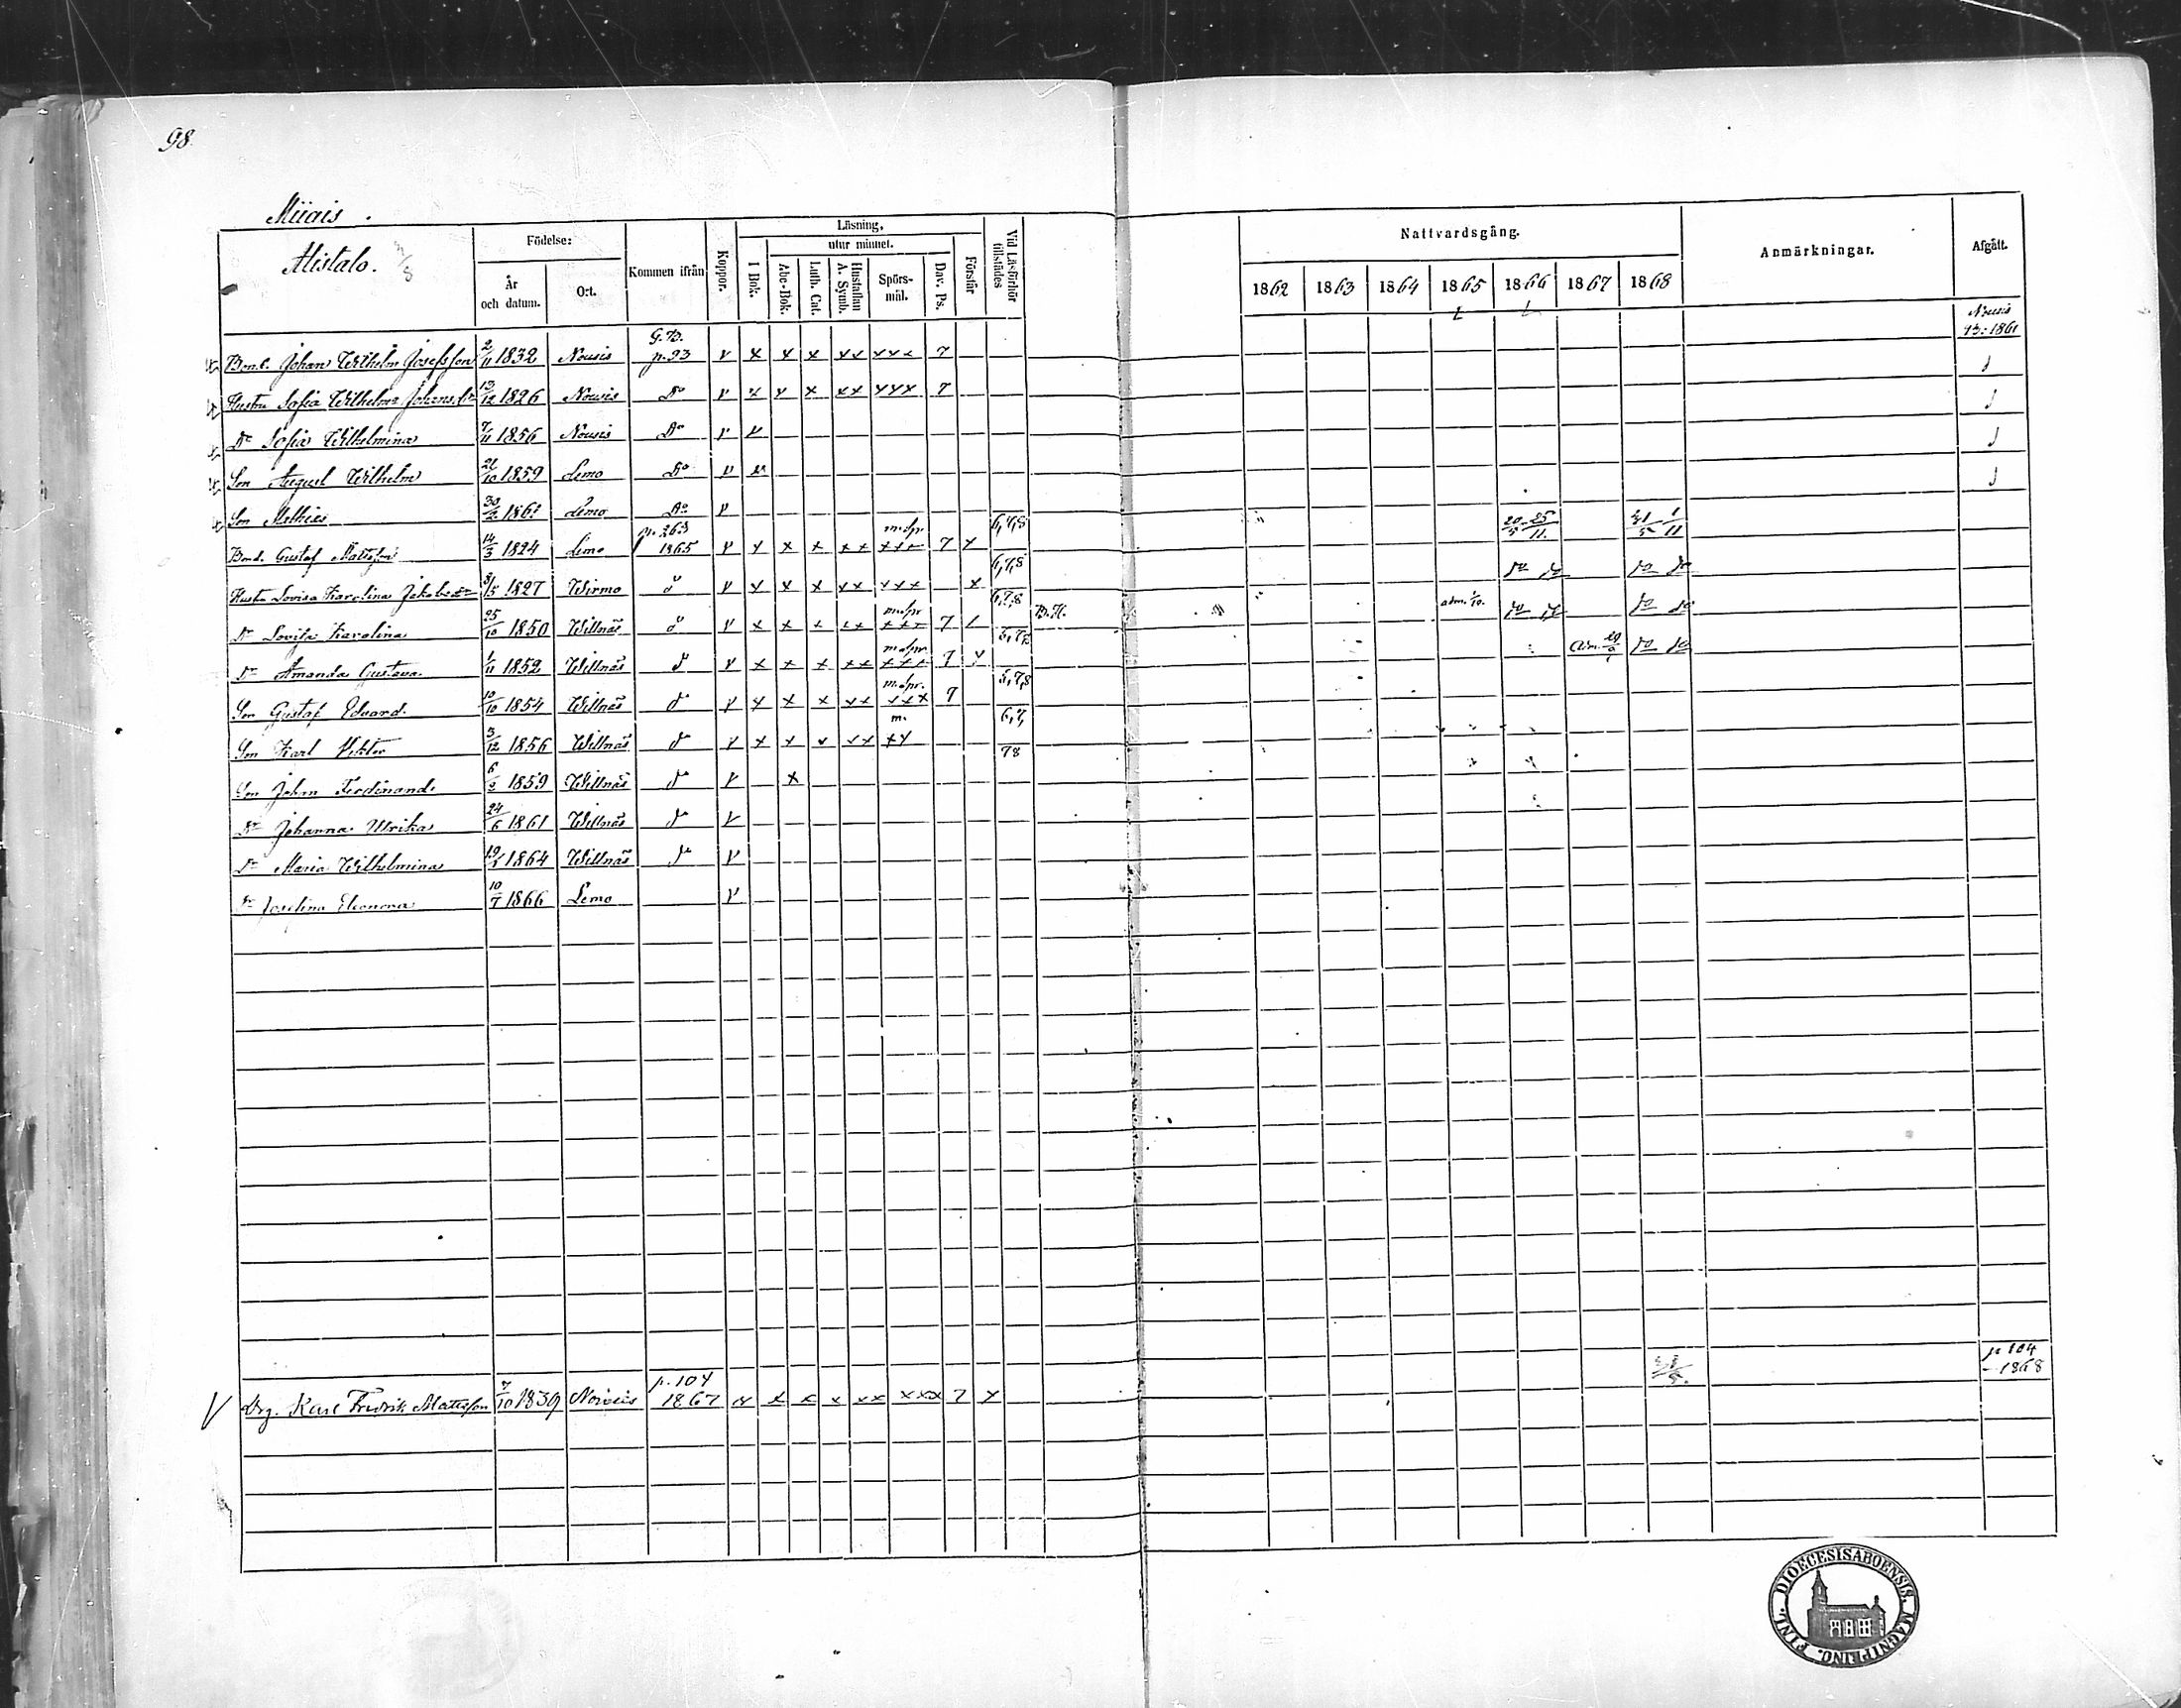 98.
Miiais.
Alistalo. 7/8
Födelse: År och datum. Ort. Kommen ifrån Koppor. Läsning, I Bok. utur minnet. Abc-Bok. Luth. Cat. Hustaflan A. Symb. Spörs-mål. Dav. Ps. Förstår Vid Läsförhör tillstädes Nattvardsgång. 1862 1863 1864 1865 1866 1867 1868 Anmärkningar. Afgått.
Bond. Johan Wilhelm Josefsson 2/11 1832 Nousis G.B. p. 93 v x x x xx xxx 7 Nousis 13: 1861
Hustru Sofia Wilhelma Johansdr 13/12 1826 Nousis Do v x x x xx xxx 7
Dr Sofia Wilhelmina 7/11 1856 Nousis Do v v
Son August Wilhelm 21/10 1859 Lemo Do v
Son Mathias Lemo Do v
Bond. Gustaf Mattsson 14/3 1824 Lemo p. 263 1865 v x x x xx m.spr xxx 7 x 6,7,8 20/5 25/11. 31/5 1/11
Hustru Lovisa Karolina Jakobsdr 1827 Wirmo do v x x x xx xxx x 6,7,8 do do do do
Dr Lovisa Karolina 25/10 1850 Willnäs do v x x x xx m.spr xxx 7 6,7,8 adm. 1/10. do do do do
Dr Amanda Gustava 1/11 1852 Willnäs do v x x x xx m.spr xxx 7 x Adm. do do
Son Gustaf Edvard 10/10 1854 Willnäs do v x x x xx m.spr. xxx 7
Son Karl Viktor 3/12 1856 Willnäs do v x x x xx m. xx 6,7,
Son Johan Ferdinand 1859 Willnäs do v x 78
Dr Johanna Ulrika 24/6 1861 Willnäs do v
Dr Maria Wilhelmina 1864 Willnäs do v
Dr Josefina Eleonora 10/7 1866 Lemo v
Drg. Karl Fredrik Matsson 7/10 1839 Nousis p. 104 1867 x x x x xx xxx 7 x p 104 1868
FINL. DIOECESIS ABOENSIS. MAGNI PRINC.